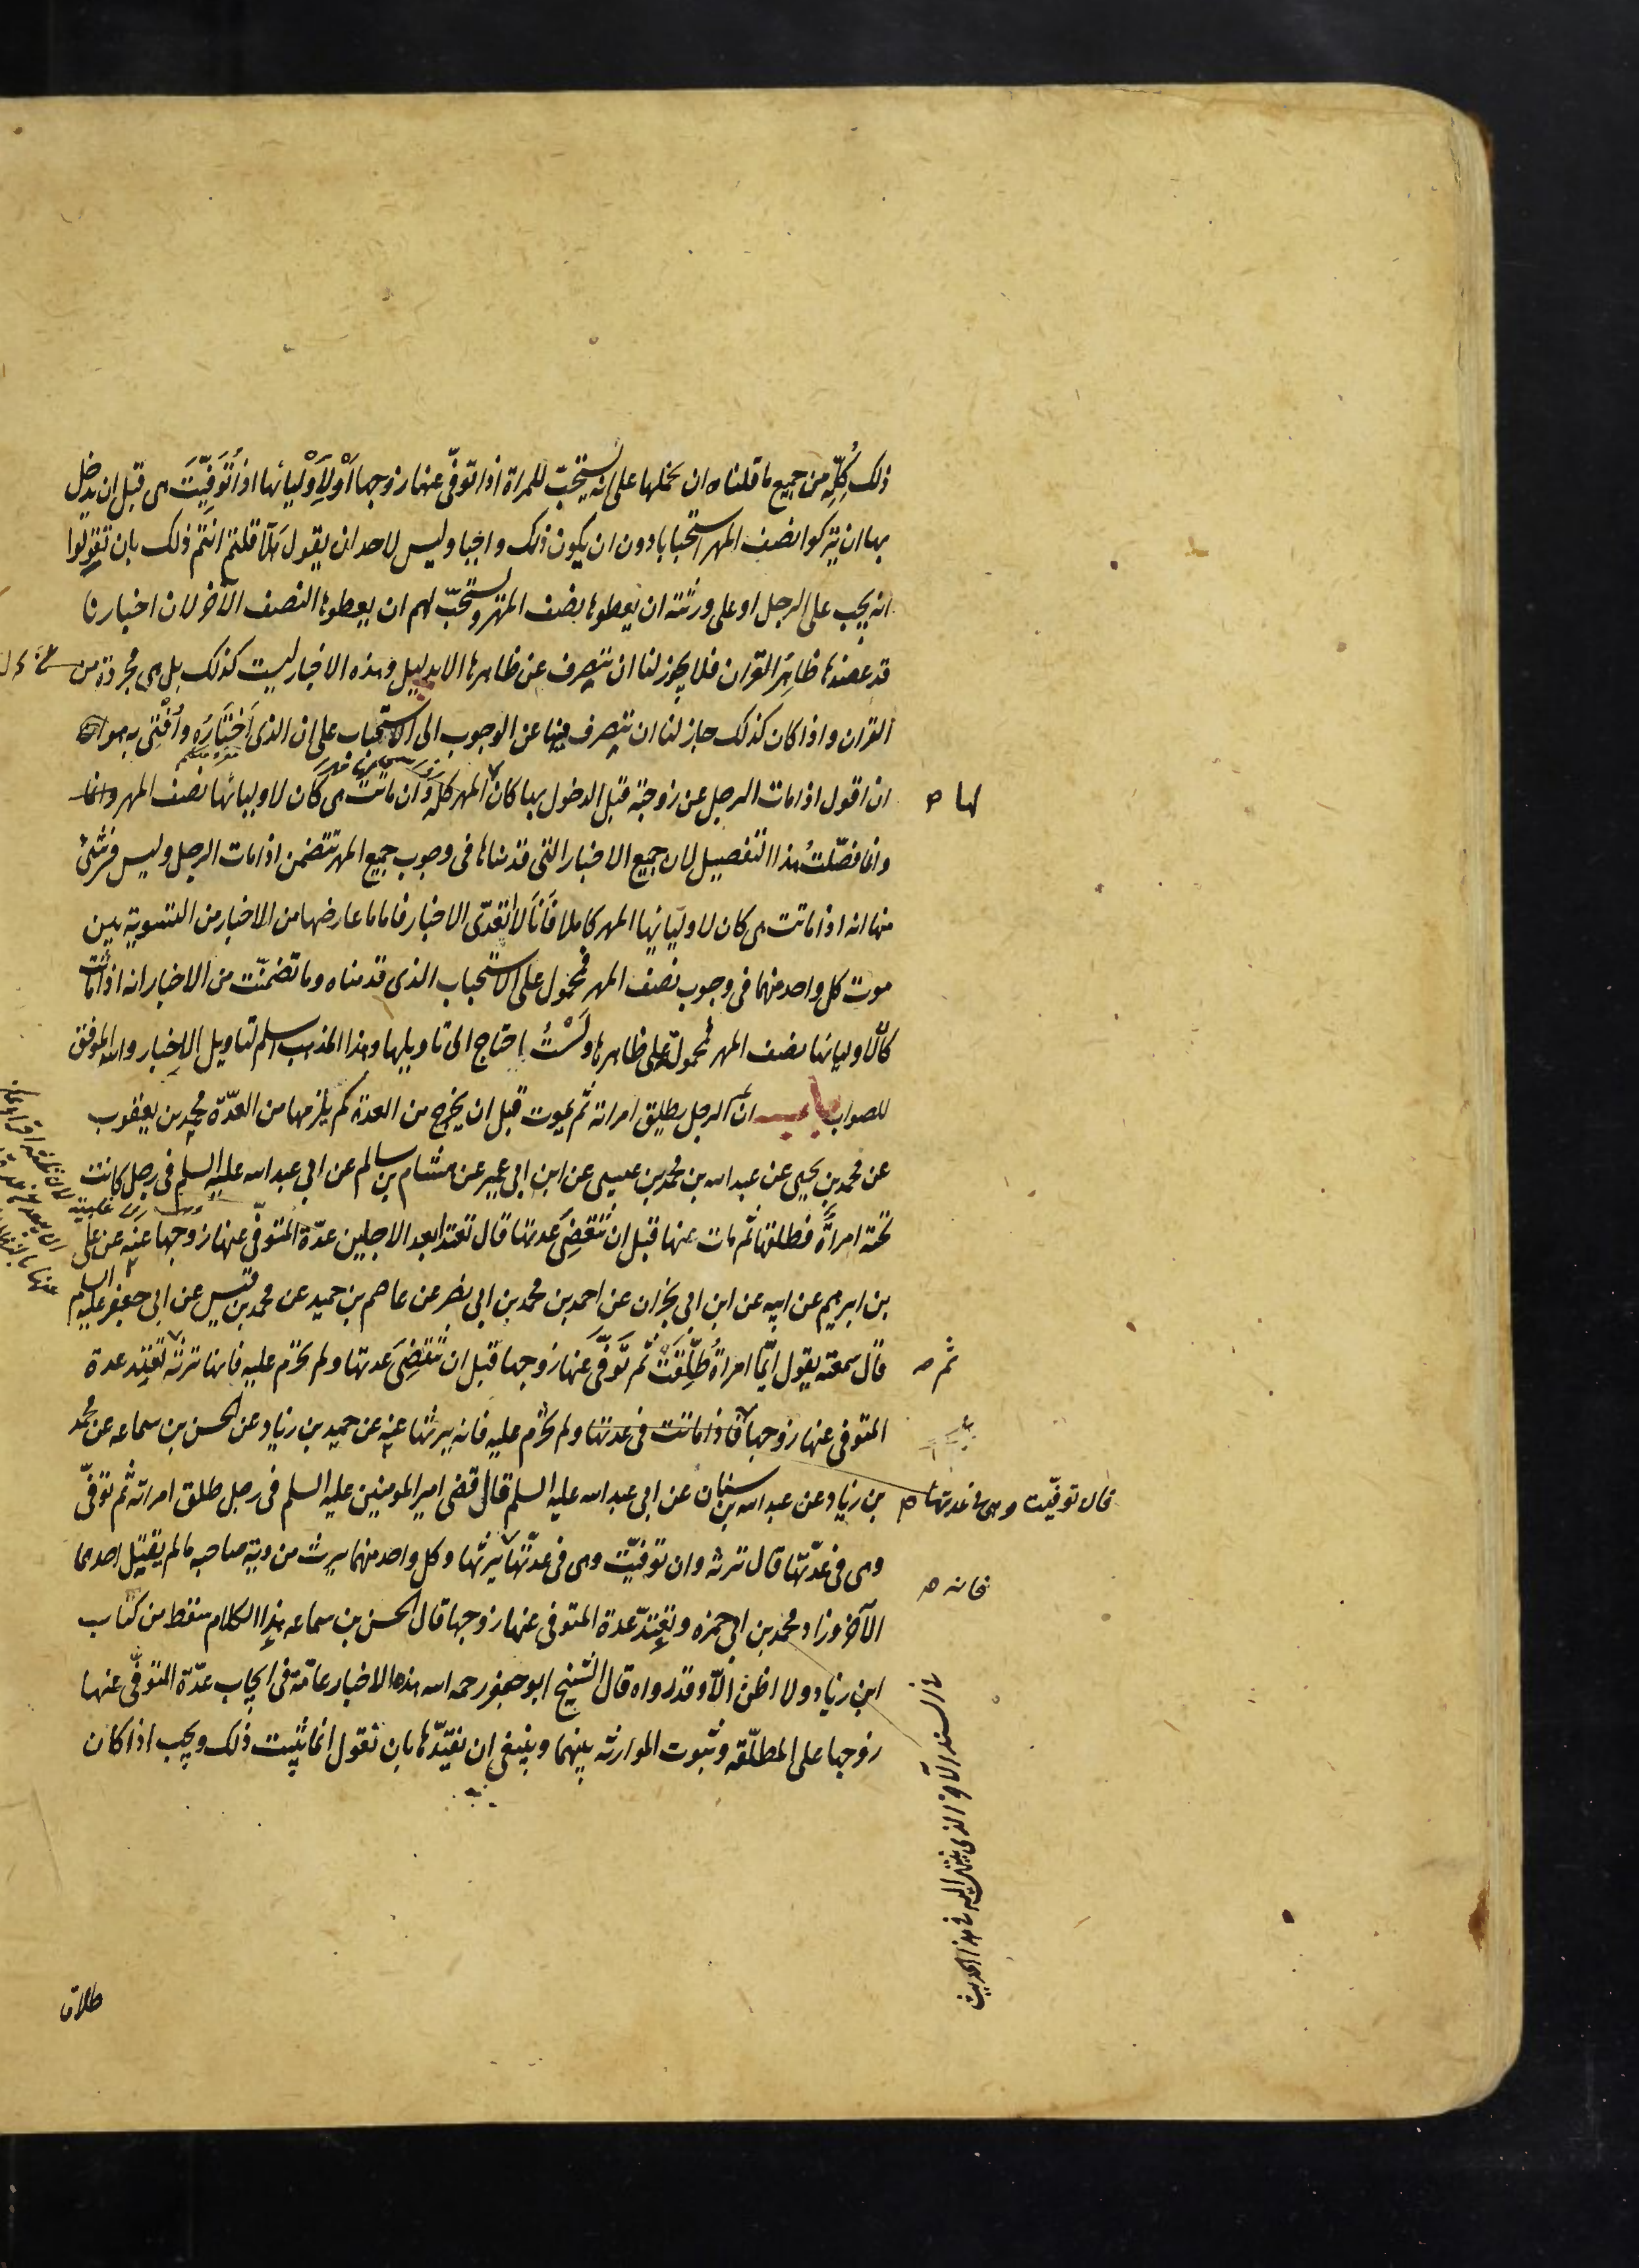 ذلك كُلِّه من جميع ما قلناه ان نحملها على انه يستحبّ للمراة اذا توفّى عنها زوجها اَوْ لِاَوْليائها اذا تُوَفِّيَتْ هى قبل ان يدخل
بها ان يتركوا نصف المهر استحبابا دون ان يكون ذلك واجبا وليس لاحد ان يقول هَلّا قلتم انتم ذلك بان تقولوا
انه يجب على الرجل او على ورثته ان يعطوها نصف المهر ويستحبّ لهم ان يعطوها النصف الآخر لان اخبارنا
قد عضدها ظاهر القران فلا يجوز لنا ان ننصرف عن ظاهرها الا بدليل وهذه الاخبار ليست كذلك بل هى مجردة من
القران واذا كان كذلك جاز لنا ان ننصرف فيها عن الوجوب الى الاستحباب على ان الذى اَخْتَارُه وأُفْتِى به هو
ان اقول اذا مات الرجل عن زوجته قبل الدخول بها كان المهر كلّه وان ماتت هى كان لاوليائها نصف المهر وانما
لها صح
وانما فصّلتُ هذا التفصيل لان جميع الاخبار التى قدمناها فى وجوب جميع المهر تتضمن اذا مات الرجل وليس فى شئ
منها انه اذا ماتت هى كان لاوليائها المهر كاملا فَاَنَا لا اتعدّى الاخبار فاما ما عارضها من الاخبار من التسوية بين
موت كل واحد منهما فى وجوب نصف المهر فمحمول على الاستحباب الذى قدمناه وما تضمنّت من الاخبار انه اذا ماتت
كان لاوليائها نصف المهر فمحمولة على ظاهرها ولَسْتُ احتاج الى تاويلها وهذا المذهب اسلم لتاويل الاخبار والله الموفق
للصواب باب ان الرجل يطلق امراته ثم يموت قبل ان يخرج من العدة كم يلزمها من العدّة محمد بن يعقوب
عن محمد بن يحيى عن عبد الله بن محمد بن عيسى عن ابن ابى عمير عن هشام بن سالم عن ابى عبد الله عليه السلم فى رجل كانت
تحته امراةٌ فطلقها ثم مات عنها قبل ان تنقضى عدتها قال تعتد ابعد الاجلين عدّة المتوفّى عنها زوجها عنه عن على
بن ابرهيم عن ابيه عن ابن ابى نجران عن احمد بن محمد بن ابى نصر عن عاصم بن حميد عن محمد بن قيس عن ابى جعفر عليه السلم
قال سمعته يقول ايّما امراةٍ طُلِّقَتْ ثم توفّى عنها زوجها قبل ان تنقضى عدتها ولم تحرّم عليه فانها ترثه تعتد عدة
ثم صح
المتوفى عنها زوجها فاذا ماتت فى عدتها ولم تحرّم عليه فانه يرثها عنه عن حميد بن زياد عن الحسن بن سماعه عن محمد
قال توفّيت وهى فى عدتها صح
بن زياد عن عبد الله بن سنان عن ابى عبد الله عليه السلم قال قضى امير المومنين عليه السلم فى رجل طلق امراته ثم توفّى
وهى فى عدّتها قال ترثه وان توفيّت وهى فى عدّتها يرثها وكل واحد منهما يرث من دية صاحبه ما لم يقتل احدهما
فانه صح
الآخر وزاد محمد بن ابى حمزه وتعتدّ عدة المتوفى عنها زوجها قال الحسن بن سماعه هذا الكلام سقط من كتاب
ابن زياد ولا اظن الّا وقد رواه قال الشيخ ابو جعفر رحمه الله هذه الاخبار عامّة فى ايجاب عدّة المتوفّى عنها
زوجها على المطلّقة وثبوت الموارثه بينهما وينبغى ان نقيّدها بان نقول انما يثبت ذلك ويجب اذا كان
طلاق